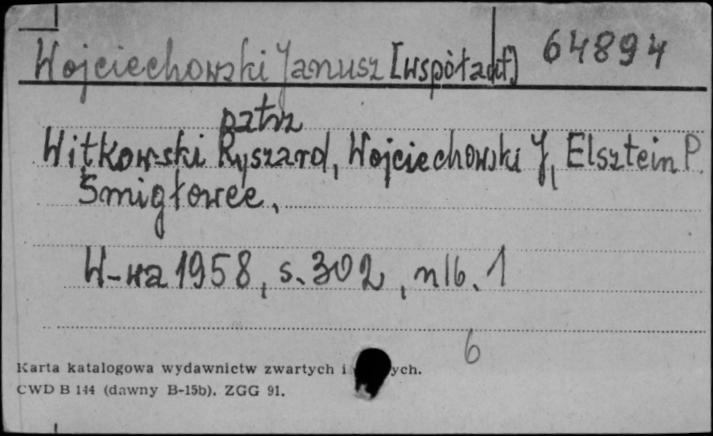 Wojciechowski Janusz [współaut] 64894
patrz
Witkowski Ryszard, Wojciechowski J, Elsztein P.
Śmigłowce.
W-wa 1958, s. 302, nlb. 1
6
Karta katalogowa wydawnictw zwartych i ych.
CWD B 144 (dawny B-15b). ZGG 91.